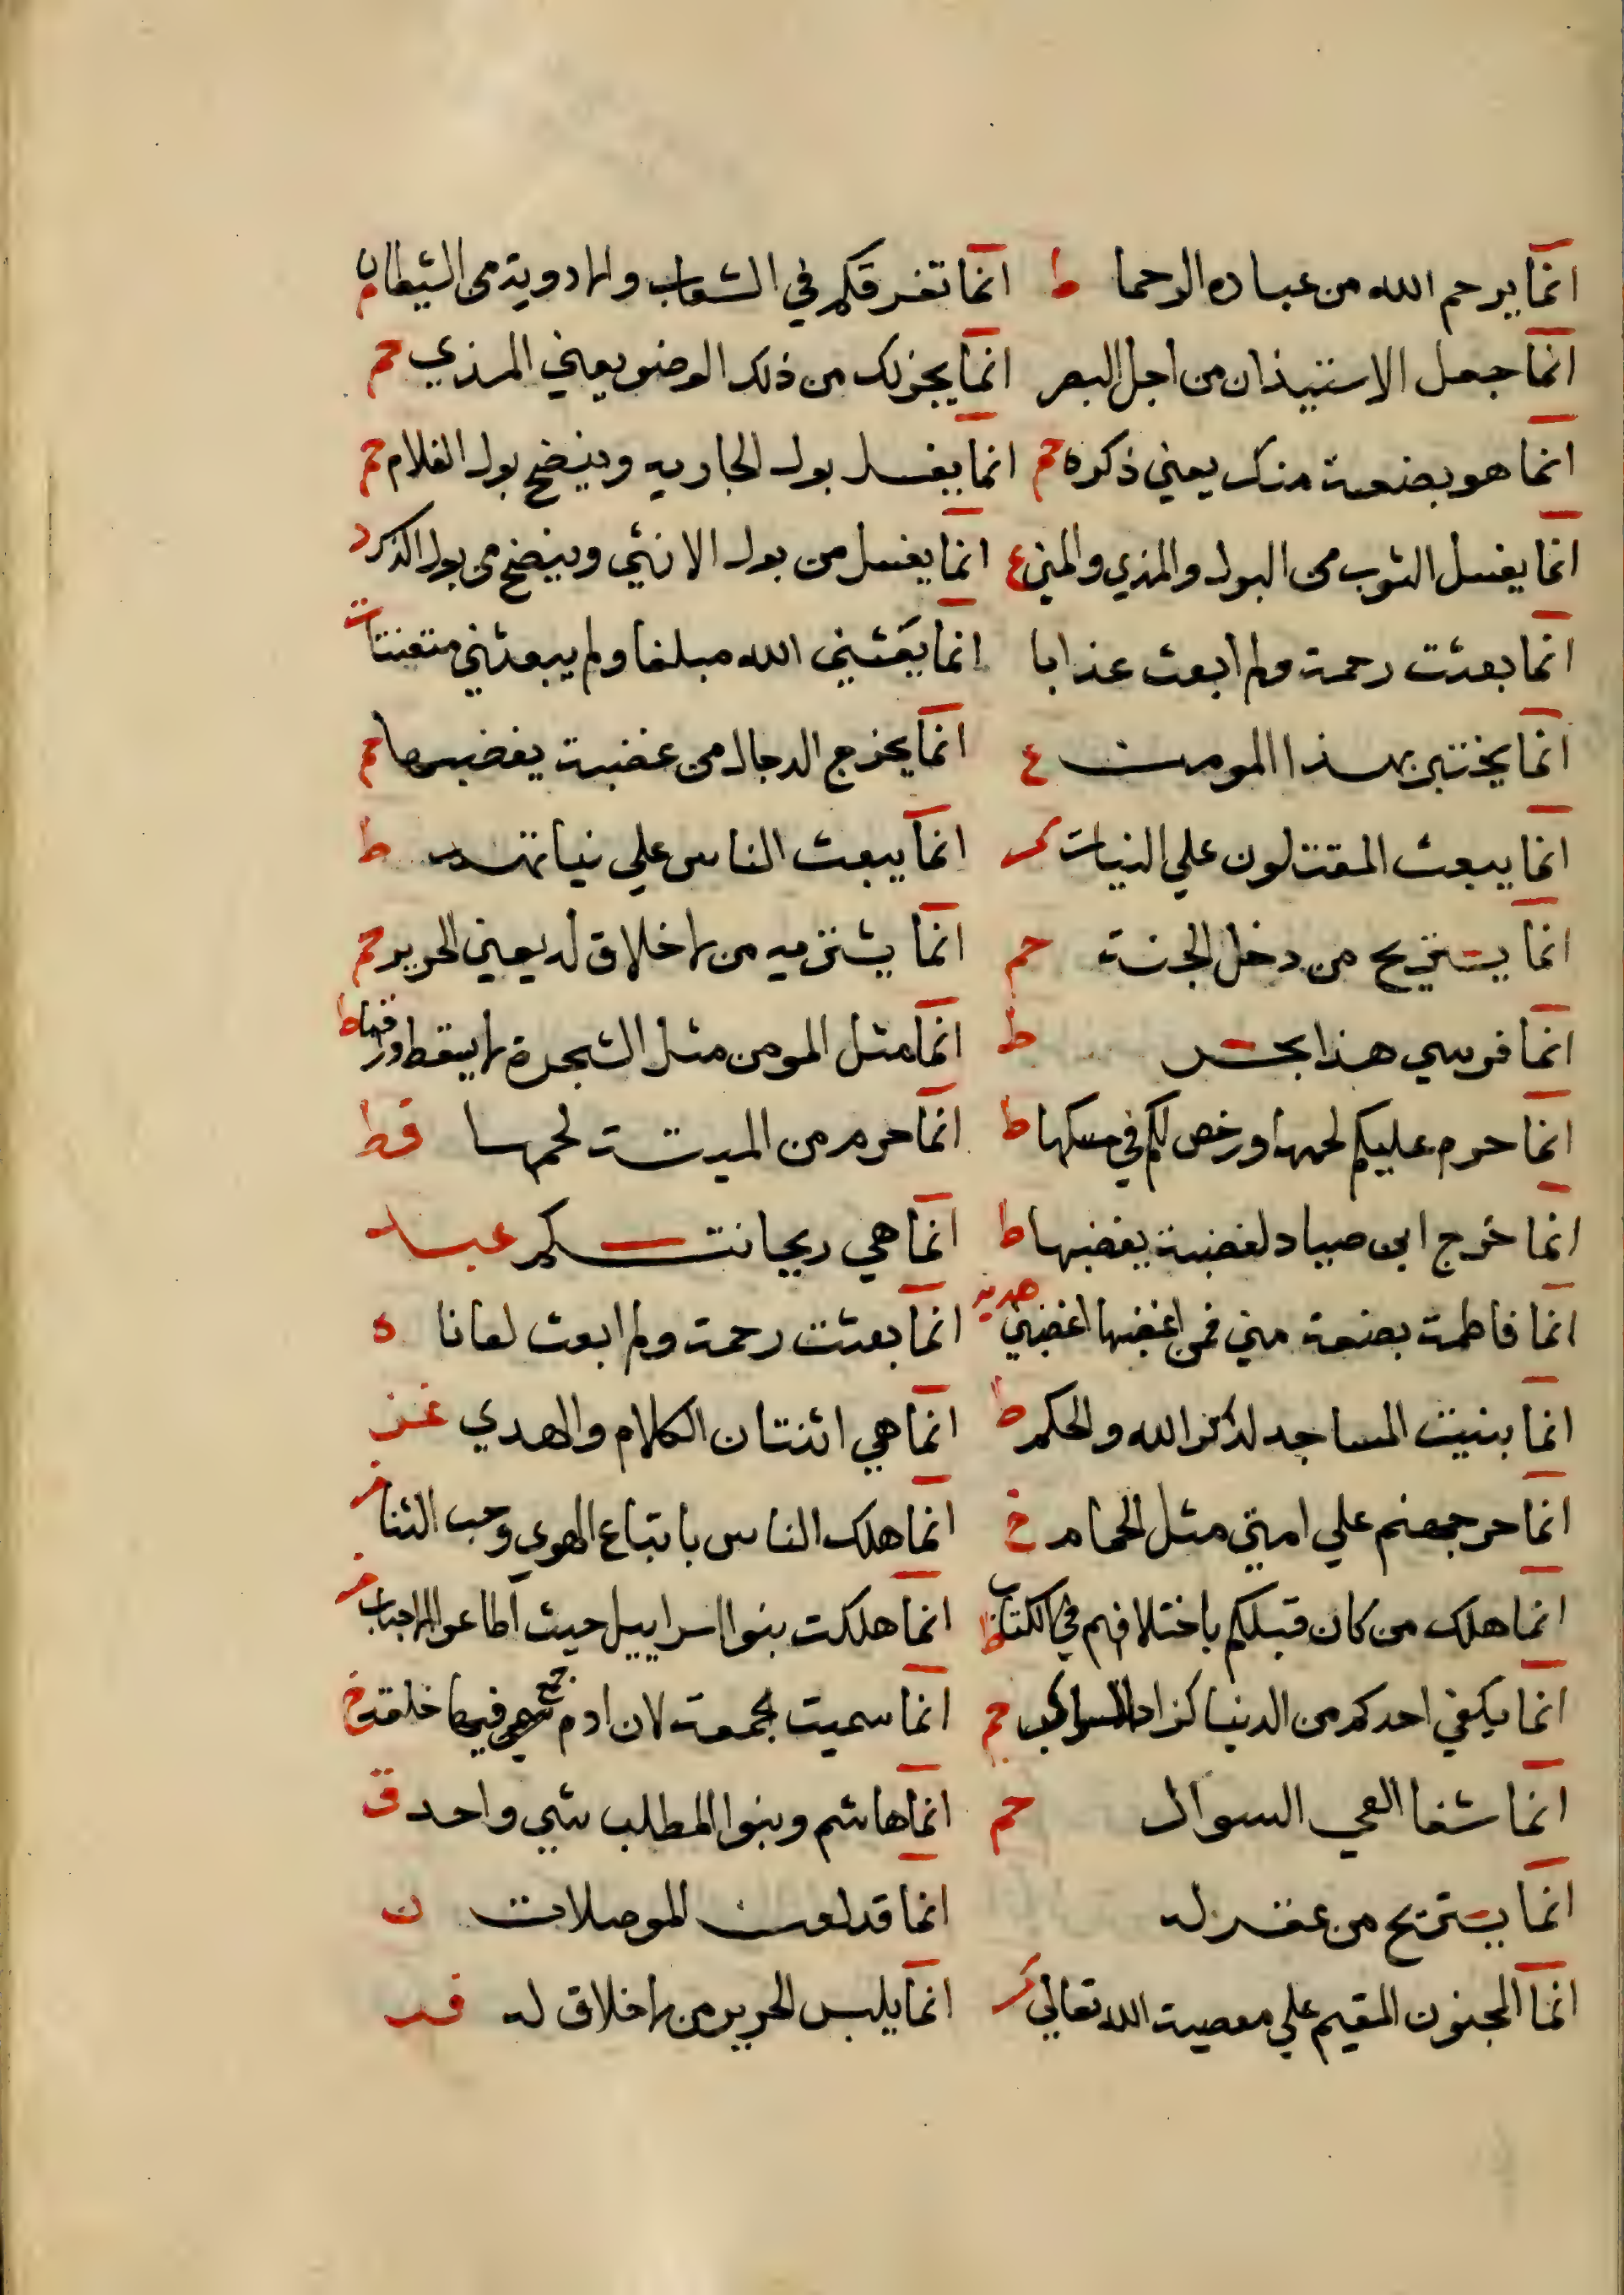 انما يرحم الله من عباده الرحما ط انما تفرقكم في الشعاب والاودية من الشيطان م
انما جعل الاستيذان من اجل البصر انما يجزئك من ذلك الوضو يعني المذي حم
انما هو بضعة منك يعني ذكره حم انما يغسل بول الجاريه وينضح بول الغلام حم
انما يغسل الثوب من البول والمذي والمني ع انما يغسل من بول الانثي وينضح من بول الذكر د
انما بعثت رحمة ولم ابعث عذابا انما بعثني الله مبلغا ولم يبعثني متعنتا ت
انما بهذا المومن ع انما يخرج الدجال من غضبة يغضبها حم
انما يبعث المقتتلون علي النيات كر انما يبعث الناس علي نياتهم ط
انما يستريح من دخل الجنة حم انما يشتريه من لا خلاق له يعني الحرير حم
انما فرسي هذا بحر ط انما مثل المومن مثل الشجرة لا يسقط ورقها ط
انما حرم عليكم لحمها ورخص لكم في مسكها ط انما حرم من الميتة لحمها قط
انما خرج ابن صياد لغضبة يغضبها ط انما هي ريحانتكم عبد
انما فاطمة بضعة مني فمن اغضبها اغضبني انما بعثت رحمة ولم ابعث لعانا ه
انما بنيت المساجد لذكر الله والحكم ط انما هي اثنتان الكلام والهدي
انما حر جهنم علي امتي مثل الحمام خ انما هلك الناس باتباع الهوي وحب الثنا
انما هلك من كان قبلكم باختلافهم في الكتاب انما هلكت بنوا اسراييل حيث اطاعوا
انما يكفي احدكم من الدنيا كزاد الراكب حم انما سميت الجمعة لان ادم جمع فيها خلقه خ
انما شفا العي السوال حم انما هاشم وبنوا المطلب شي واحد ق
انما يستريح من غفر له انما قد لعن الموصلات ن
انما المجنون المقيم علي معصية الله تعالي كر انما يلبس الحرير من لا خلاق له